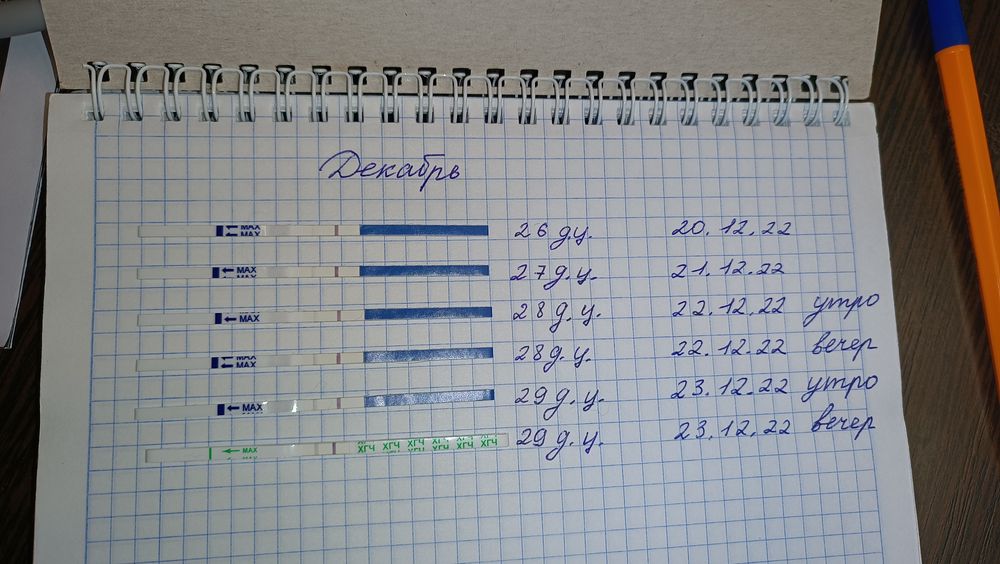 Декабрь
MAX MAX 26 д.ц. 20.12.22
MAX 27 д.ц. 21.12.22
MAX 28 д.ц. 22.12.22 утро
MAX MAX 28 д.ц. 22.12.22 вечер
MAX 29 д.ц. 23.12.22 утро
MAX ХГЧ ХГЧ ХГЧ ХГЧ ХГЧ ХГЧ 29 д.ц. 23.12.22 вечер